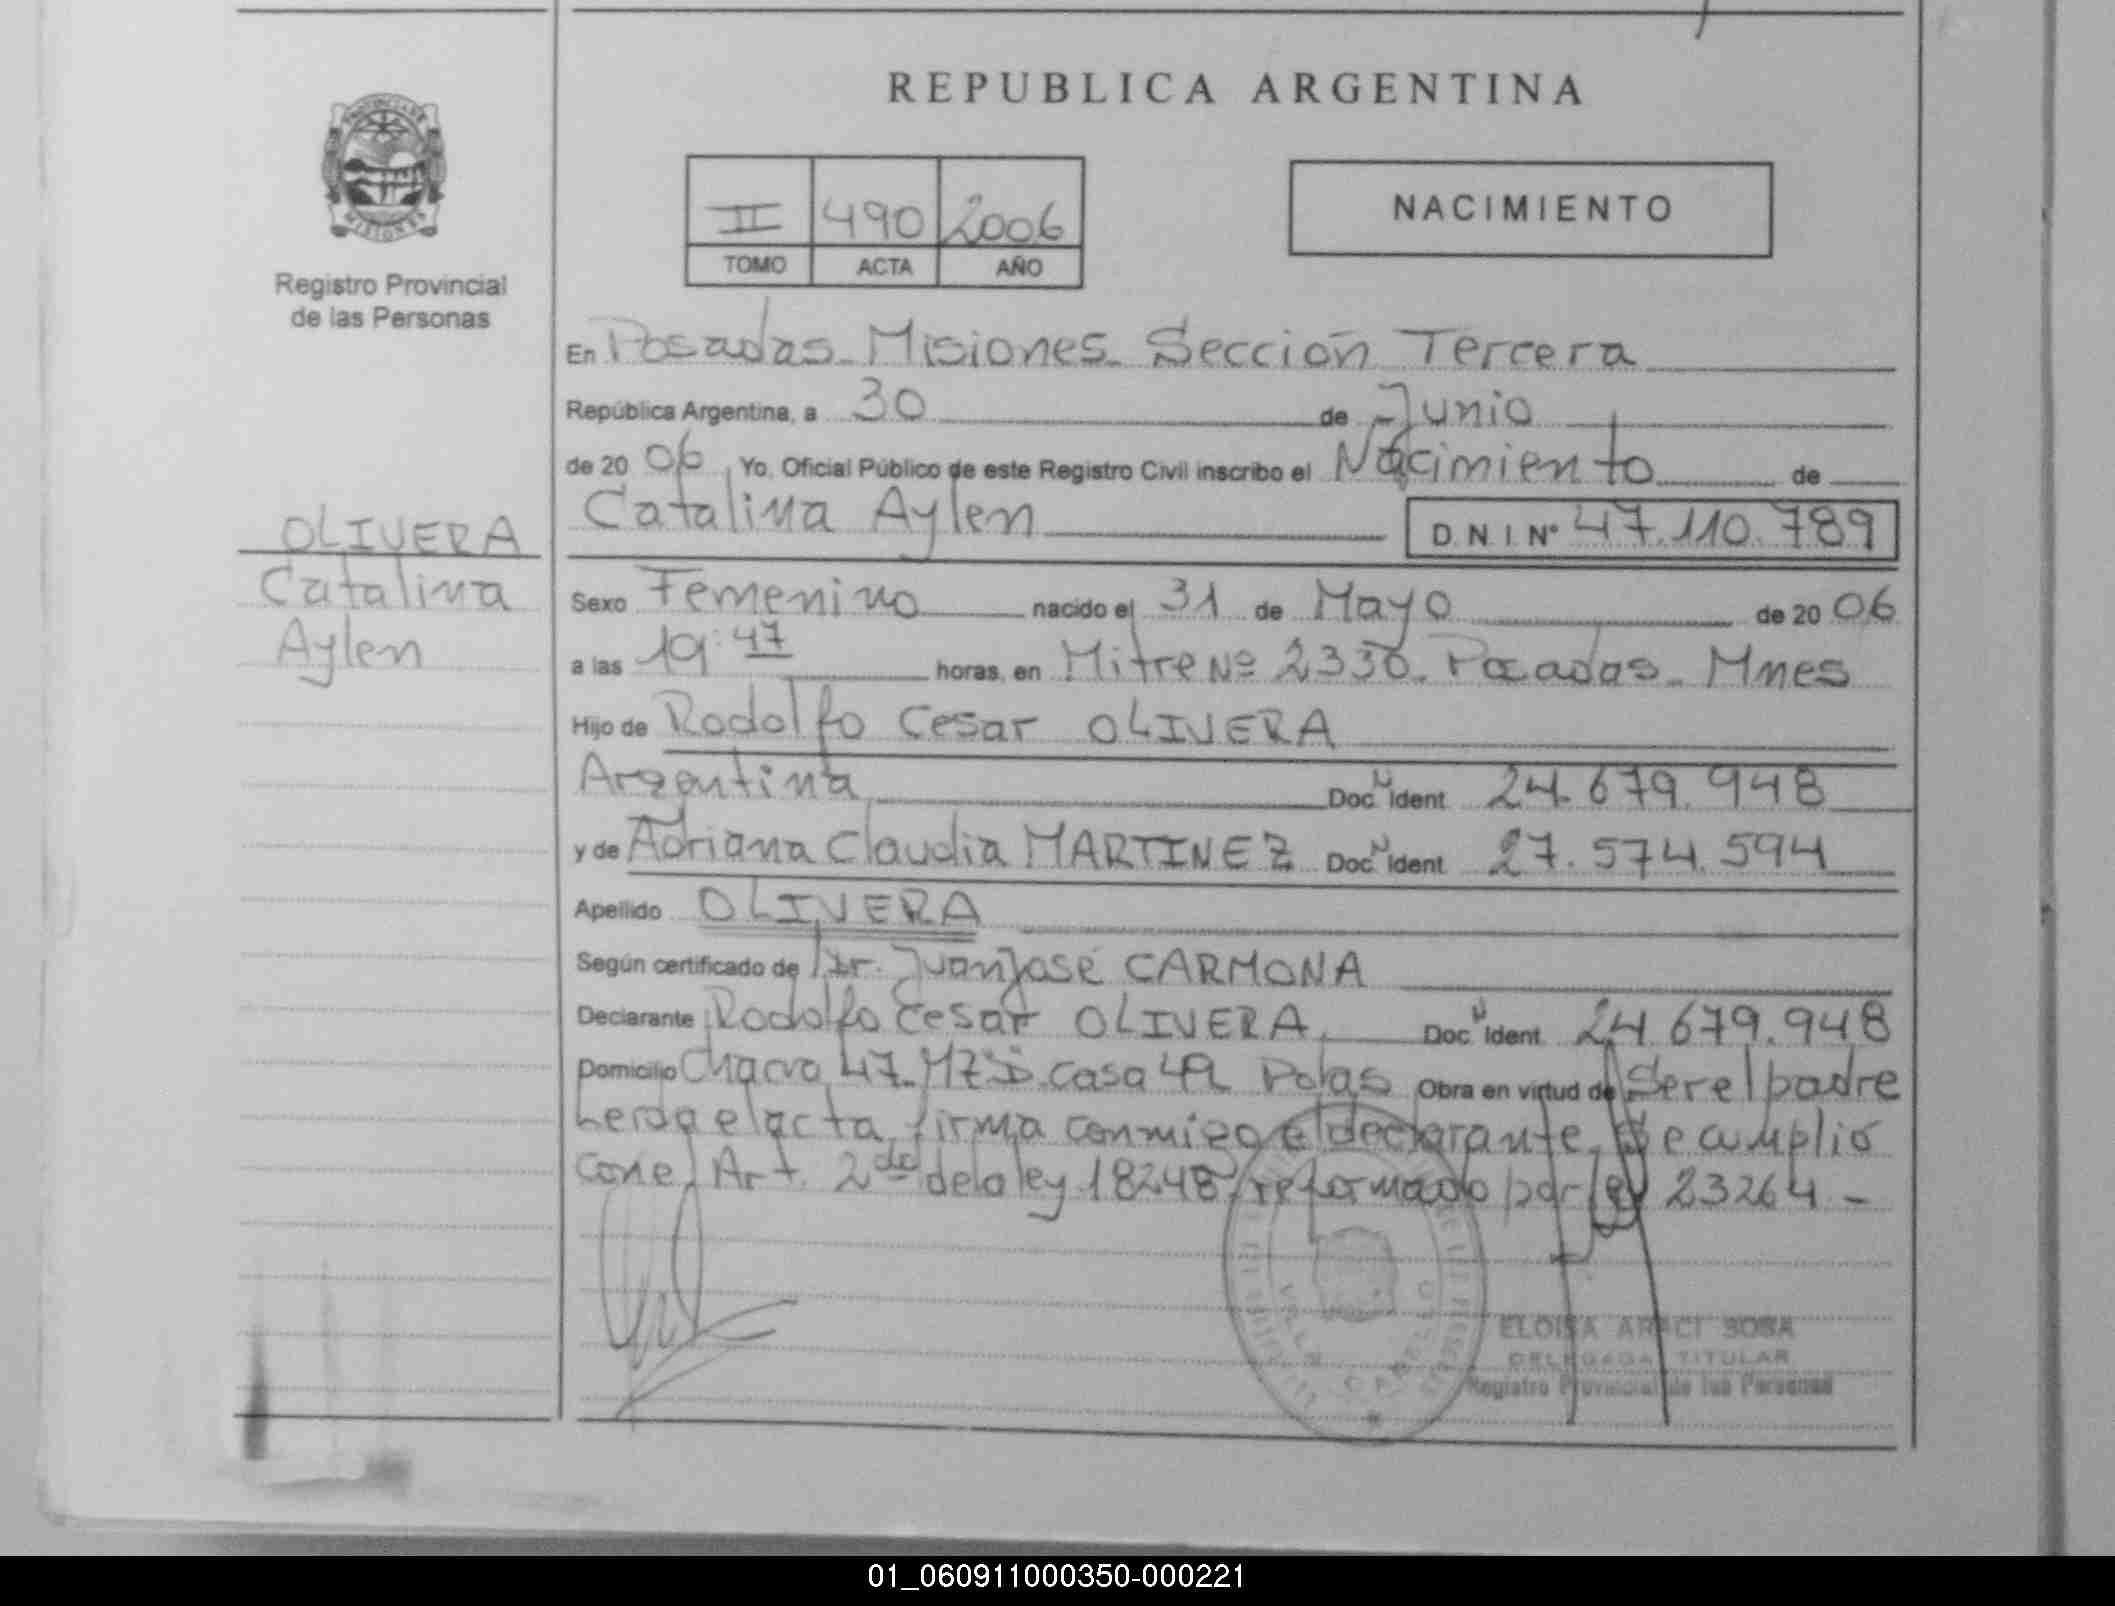 REPUBLICA ARGENTINA
PROVINCIA DE
MISIONES
Registro Provincial
de las Personas
II 490 2006
TOMO ACTA AÑO
NACIMIENTO
En Posadas - Misiones - Sección Tercera
República Argentina, a 30 de Junio
de 20 06 Yo, Oficial Público de este Registro Civil inscribo el Nacimiento de
Catalina Aylen D.N.I.Nº 47.110.789
OLIVERA
Catalina
Aylen
Sexo Femenino nacido el 31 de Mayo de 20 06
a las 19:47 horas, en Mitre Nº 2330 - Posadas - Mnes
Hijo de Rodolfo Cesar OLIVERA
Argentina Doc. N Ident 24.679.948
y de Adriana Claudia MARTINEZ Doc. N Ident 27.574.594
Apellido OLIVERA
Según certificado de Dr. Juan José CARMONA
Declarante Rodolfo Cesar OLIVERA Doc. N Ident 24.679.948
Domicilio Chacra 47 - Mz casa Pdas Obra en virtud de Ser el padre
Leida el acta, firma conmigo el declarante. Se cumplió
con el Art. 2do de la ley 18248 reformado por ley 23264 -
ELOISA ARACI SOSA
DELEGADA TITULAR
Registro Provincial de las Personas
01_060911000350-000221